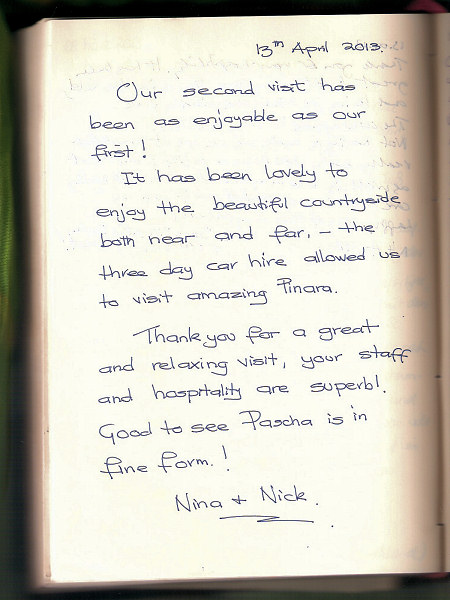 13th April 2013.
Our second visit has
been as enjoyable as our
first!
It has been lovely to
enjoy the beautiful countryside
both near and far, - the
three day car hire allowed us
to visit amazing Pinara.
Thank you for a great
and relaxing visit, your staff
and hospitality are superb!.
Good to see Pascha is in
fine form.!
Nina + Nick.